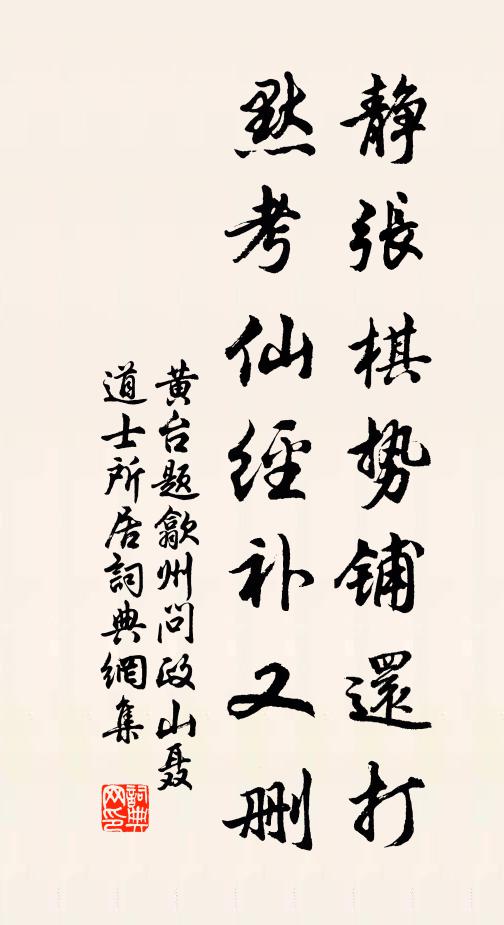 静張棋勢铺還打
黙考仙經补又删
黄台题歙州问政山聂
道士所居詞典網集
詞典
网印